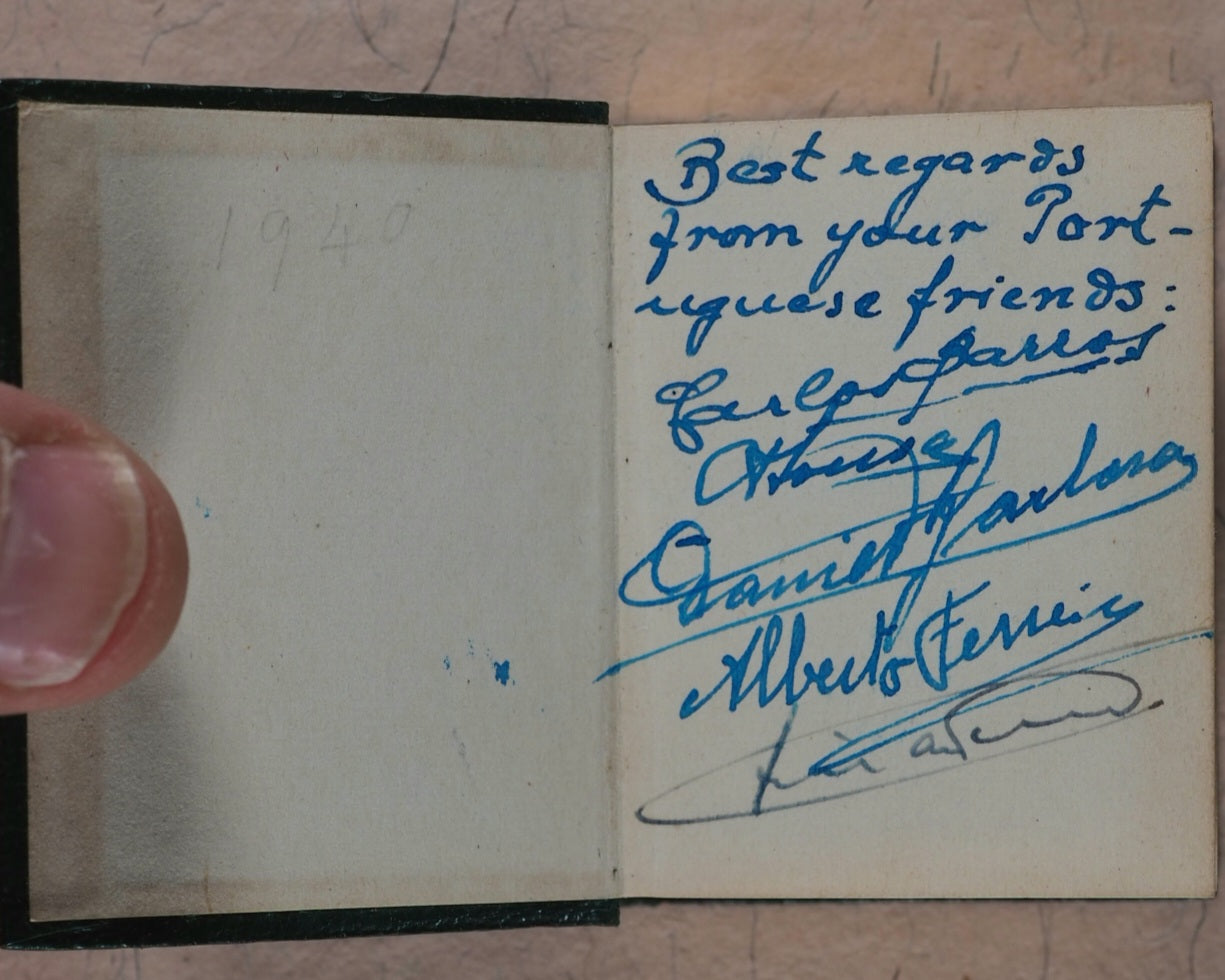 1940
Best regards
from your Port-
uguese friends:
Carlos Barros
Daniel Barbosa
Alberto Ferreira